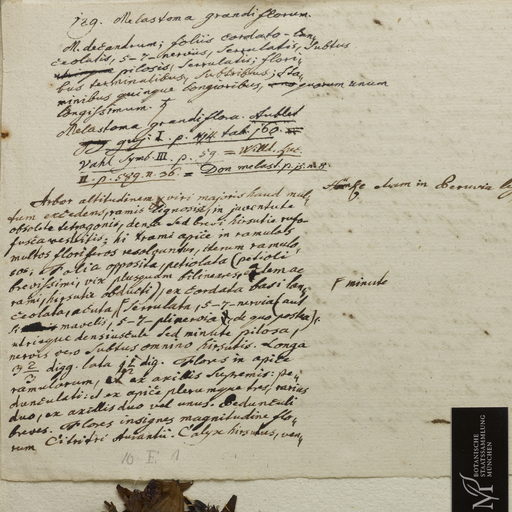 129. Melastoma grandiflorum.
M. decandrum; foliis cordato-lan-
ceolatis, 5-7-nerviis, serrulatis, subtus
pilosis, serrulatis; flori-
bus terminalibus, subtribus; sta-
minibus quinque longioribus, quorum unum
longissimum. ♄
Melastoma grandiflora. Aublet
guj. I. p. 414. tab. 160. =
Vahl Symb. III. p. 59. = Willd. sp.
II. p. 579. n. 36. = Don melast. p.
Arbor altitudinem viri majoris haud mul-
tum excedens, ramis lignosis, in juventute
obsolete tetragonis, dense sed brevi hirsutie rufo-
fusca vestitis; hi trami apice in ramulos
multos floriferos resolvuntur, iterum ramulo-
sos; Folia opposita, petiolata (petioli
brevissimi, vix plusquam bilineares, eadem ac
rami, hirsutie obducti), ex cordata basi lan-
ceolata, acuta, serrulata, 5-7-nervia (aut
mavelis, 5-7-plinervia, de quo postea),
utrisque densiuscule sed minute pilosa,
nervis vero subtus omnino hirsutis. Longa
3 2/3 digg. lata 1 1/2 dig. Flores in apice
ramulorum, et ex axillis supremis: pe-
dunculati: et ex apice plerumque tres, rarius
duo, ex axillis duo vel unus. Pedunculi
breves. Flores insignes magnitudine flo-
rum Citri Aurantii. Calyx hirsutus, ven-
etiam in Peruvia
minute
10 E. 1
BOTANISCHE
STAATSSAMMLUNG
MÜNCHEN
M